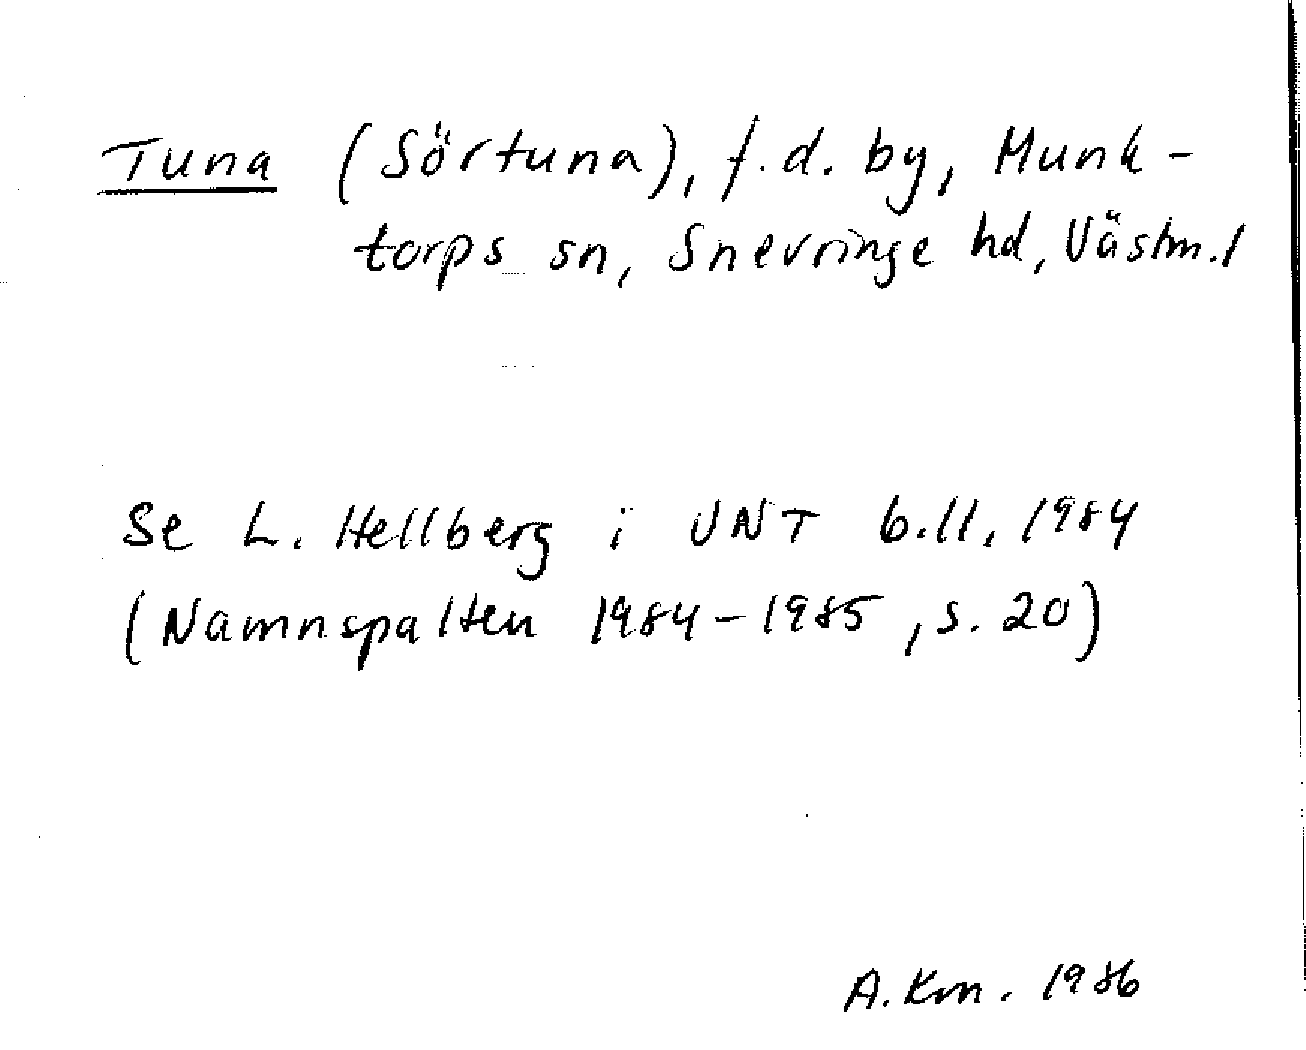 Tuna (Sörtuna), f.d. by, Munk-
torps sn, Snevringe hd, Västm.l
Se L. Hellberg i UNT 6.11.1984
(Namnspalten 1984-1985, s. 20)
A. Km. 1986